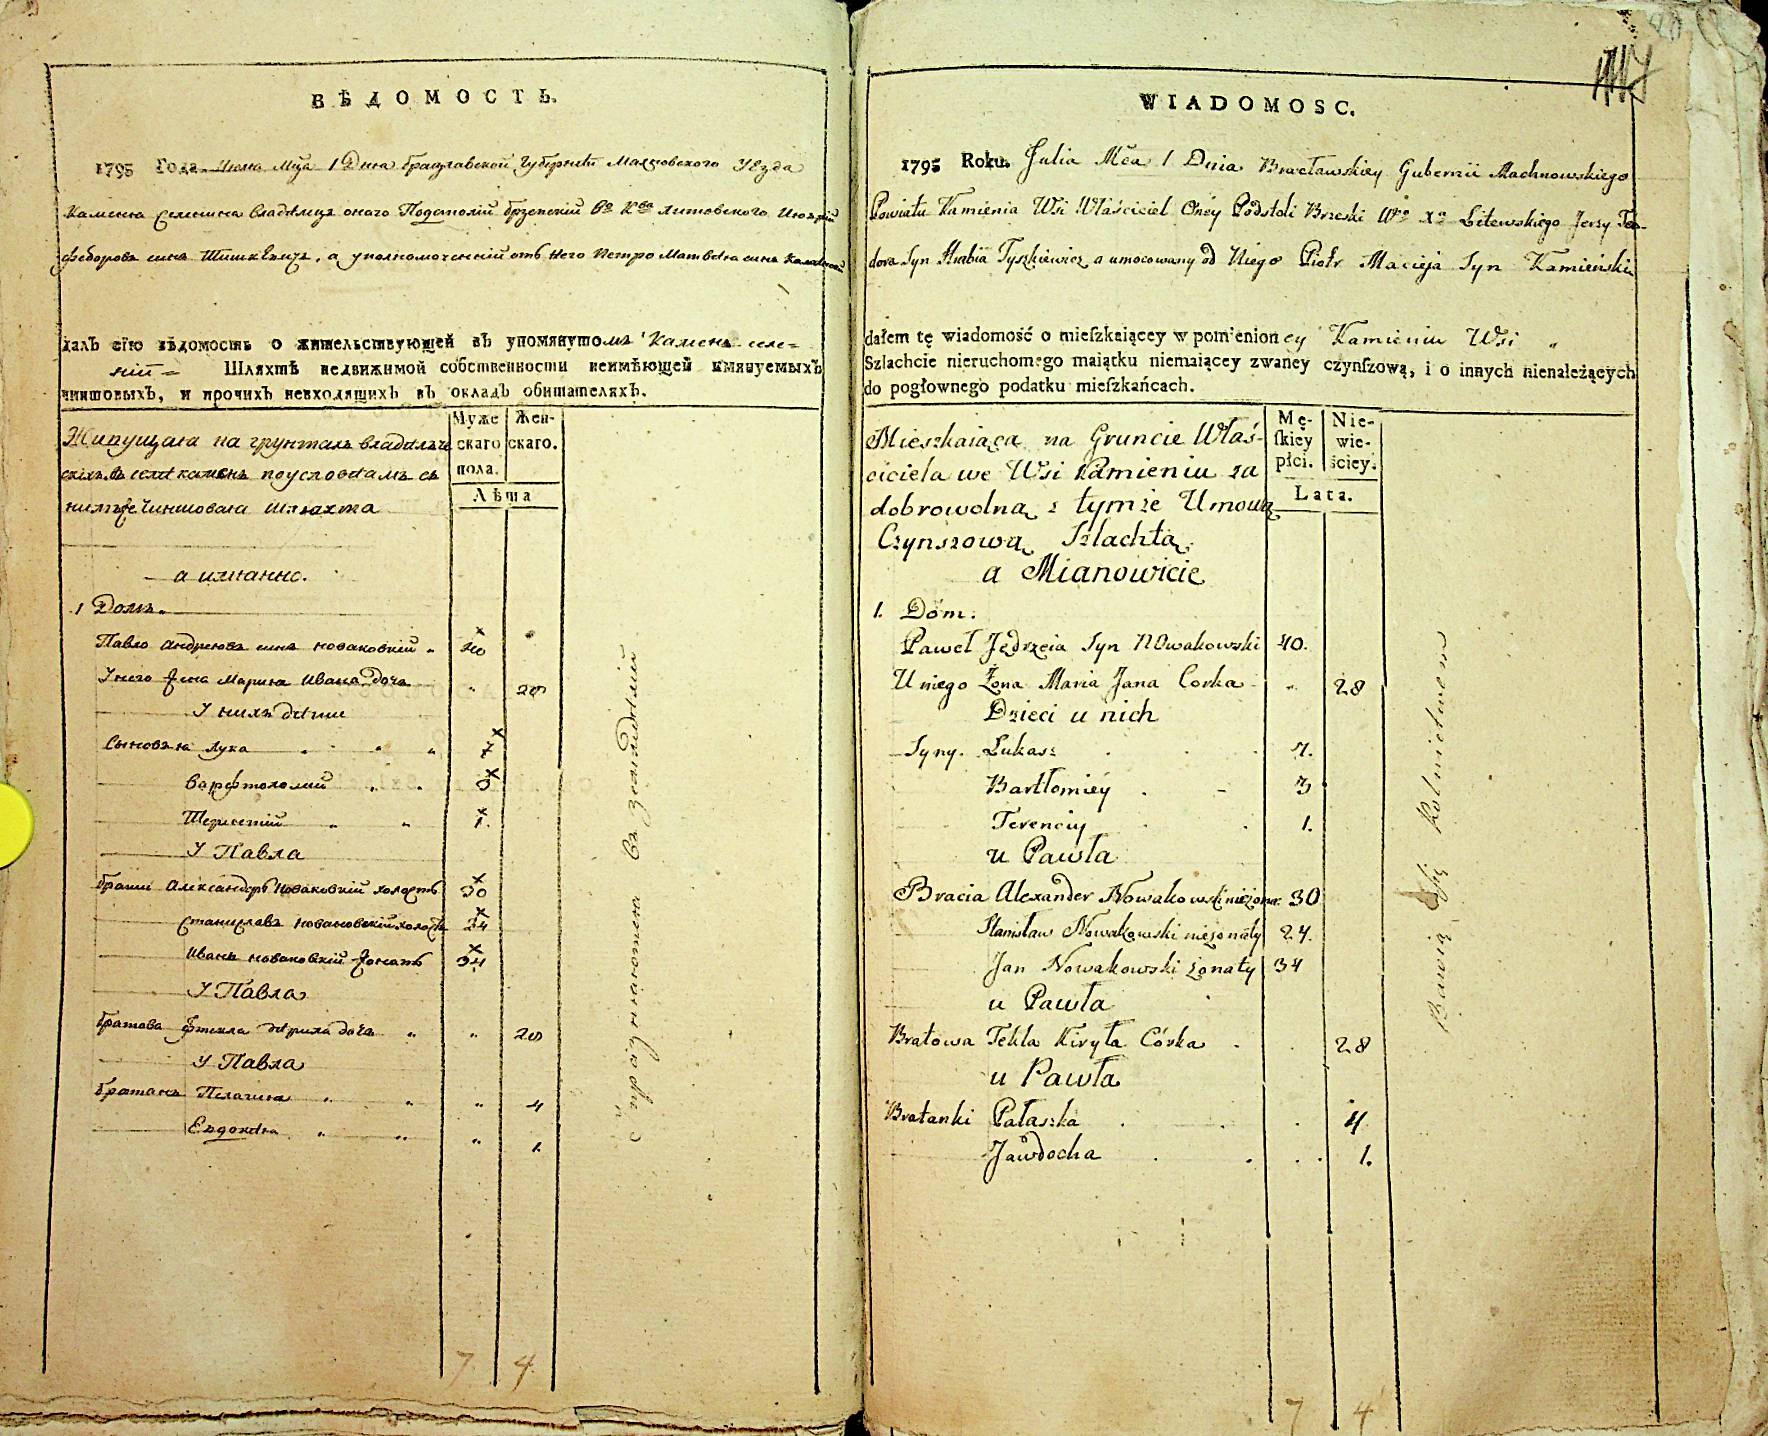 ВѢДОМОСТЬ.
1795 Года Июля Мца 1 Дня Брацлавской Губернїи Махновского Уезда
Каменя селенїя владѣлца оного Подстолїй Брзескїй Во Ква Литовского
Федоровъ синъ Тишкѣвичъ, а уполномоченнїй отъ Него Петро Матвѣя синъ
далъ сїю вѣдомость о жительствующей въ упомянутомъ Камень селе=
нїи = Шляхтѣ недвижимой собственности неимѣющей имянуемыхъ
чиншовыхъ, и прочихъ невходящихъ въ окладъ обитателяхъ.
Муже
скаго
пола.
Жен-
скаго.
Лѣта
Живущая на грунтахъ владѣлче
скихъ въ селѣ Камень поусловїамъ съ
нимъ чиншовая шляхта
а имянно.
1 Домъ.
Павло Андреювъ синъ Новаковскїй 40
У него жена Марина Ивана Доча 28
У нихъ дѣти
Сыновья Лука 7
Варфтоломий 3
Терентїй 1.
У Павла
Братьи Александръ Новаковскїй холостъ 30
Станиславъ Новаковскїй холостъ 24
Иванъ Новаковскїй жонатъ 34
У Павла
Братова Фтекла Кїрила доча 28
У Павла
Братанк Пелагия 4
Евдокия 1.
7 4
WIADOMOSC.
1795 Roku. Julia Mca 1 Dnia Bracławskiey Gubernii Machnowskiego
Powiatu Kamienia Wsi Właściciel Oney Podstoli Brzeski Wo Xo Litewskiego Jerzy Teo-
dora Syn Hrabia Tyszkiewicz a umocowany od Niego Piotr Macieja Syn Kamieński
dałem tę wiadomość o mieſzkaiącey w pomienioney Kamieniu Wsi „
Szlachcie nieruchomego maiątku niemaiącey zwaney czynſzową, i o innych nienależących
do pogłownego podatku mieſzkańcach.
Mę-
ſkiey
płci.
Nie-
wie-
ściey.
Lata.
Mieszkaiąca na Gruncie Właś-
ciciela we Wsi Kamieniu za
dobrowolną z tymże Umową
Czynszową Szlachta,
a Mianowicie
1. Dóm.
Paweł Jędrzeia Syn Nowakowski 40.
U niego Żona Maria Jana Corka 28
Dzieci u nich
Syny. Łukasz 7.
Bartłomiéy 3
Terenciy 1.
u Pawła
Bracia Alexander Nowakowski nieżona: 30
Stanisław Nowakowski nieżonaty 24.
Jan Nowakowski żonaty 34
u Pawła
Bratowa Tekla Kiryła Córka 28
u Pawła
Bratanki Pałaszka 4
Jawdocha 1.
Bawią się Rolnictwem
7 4